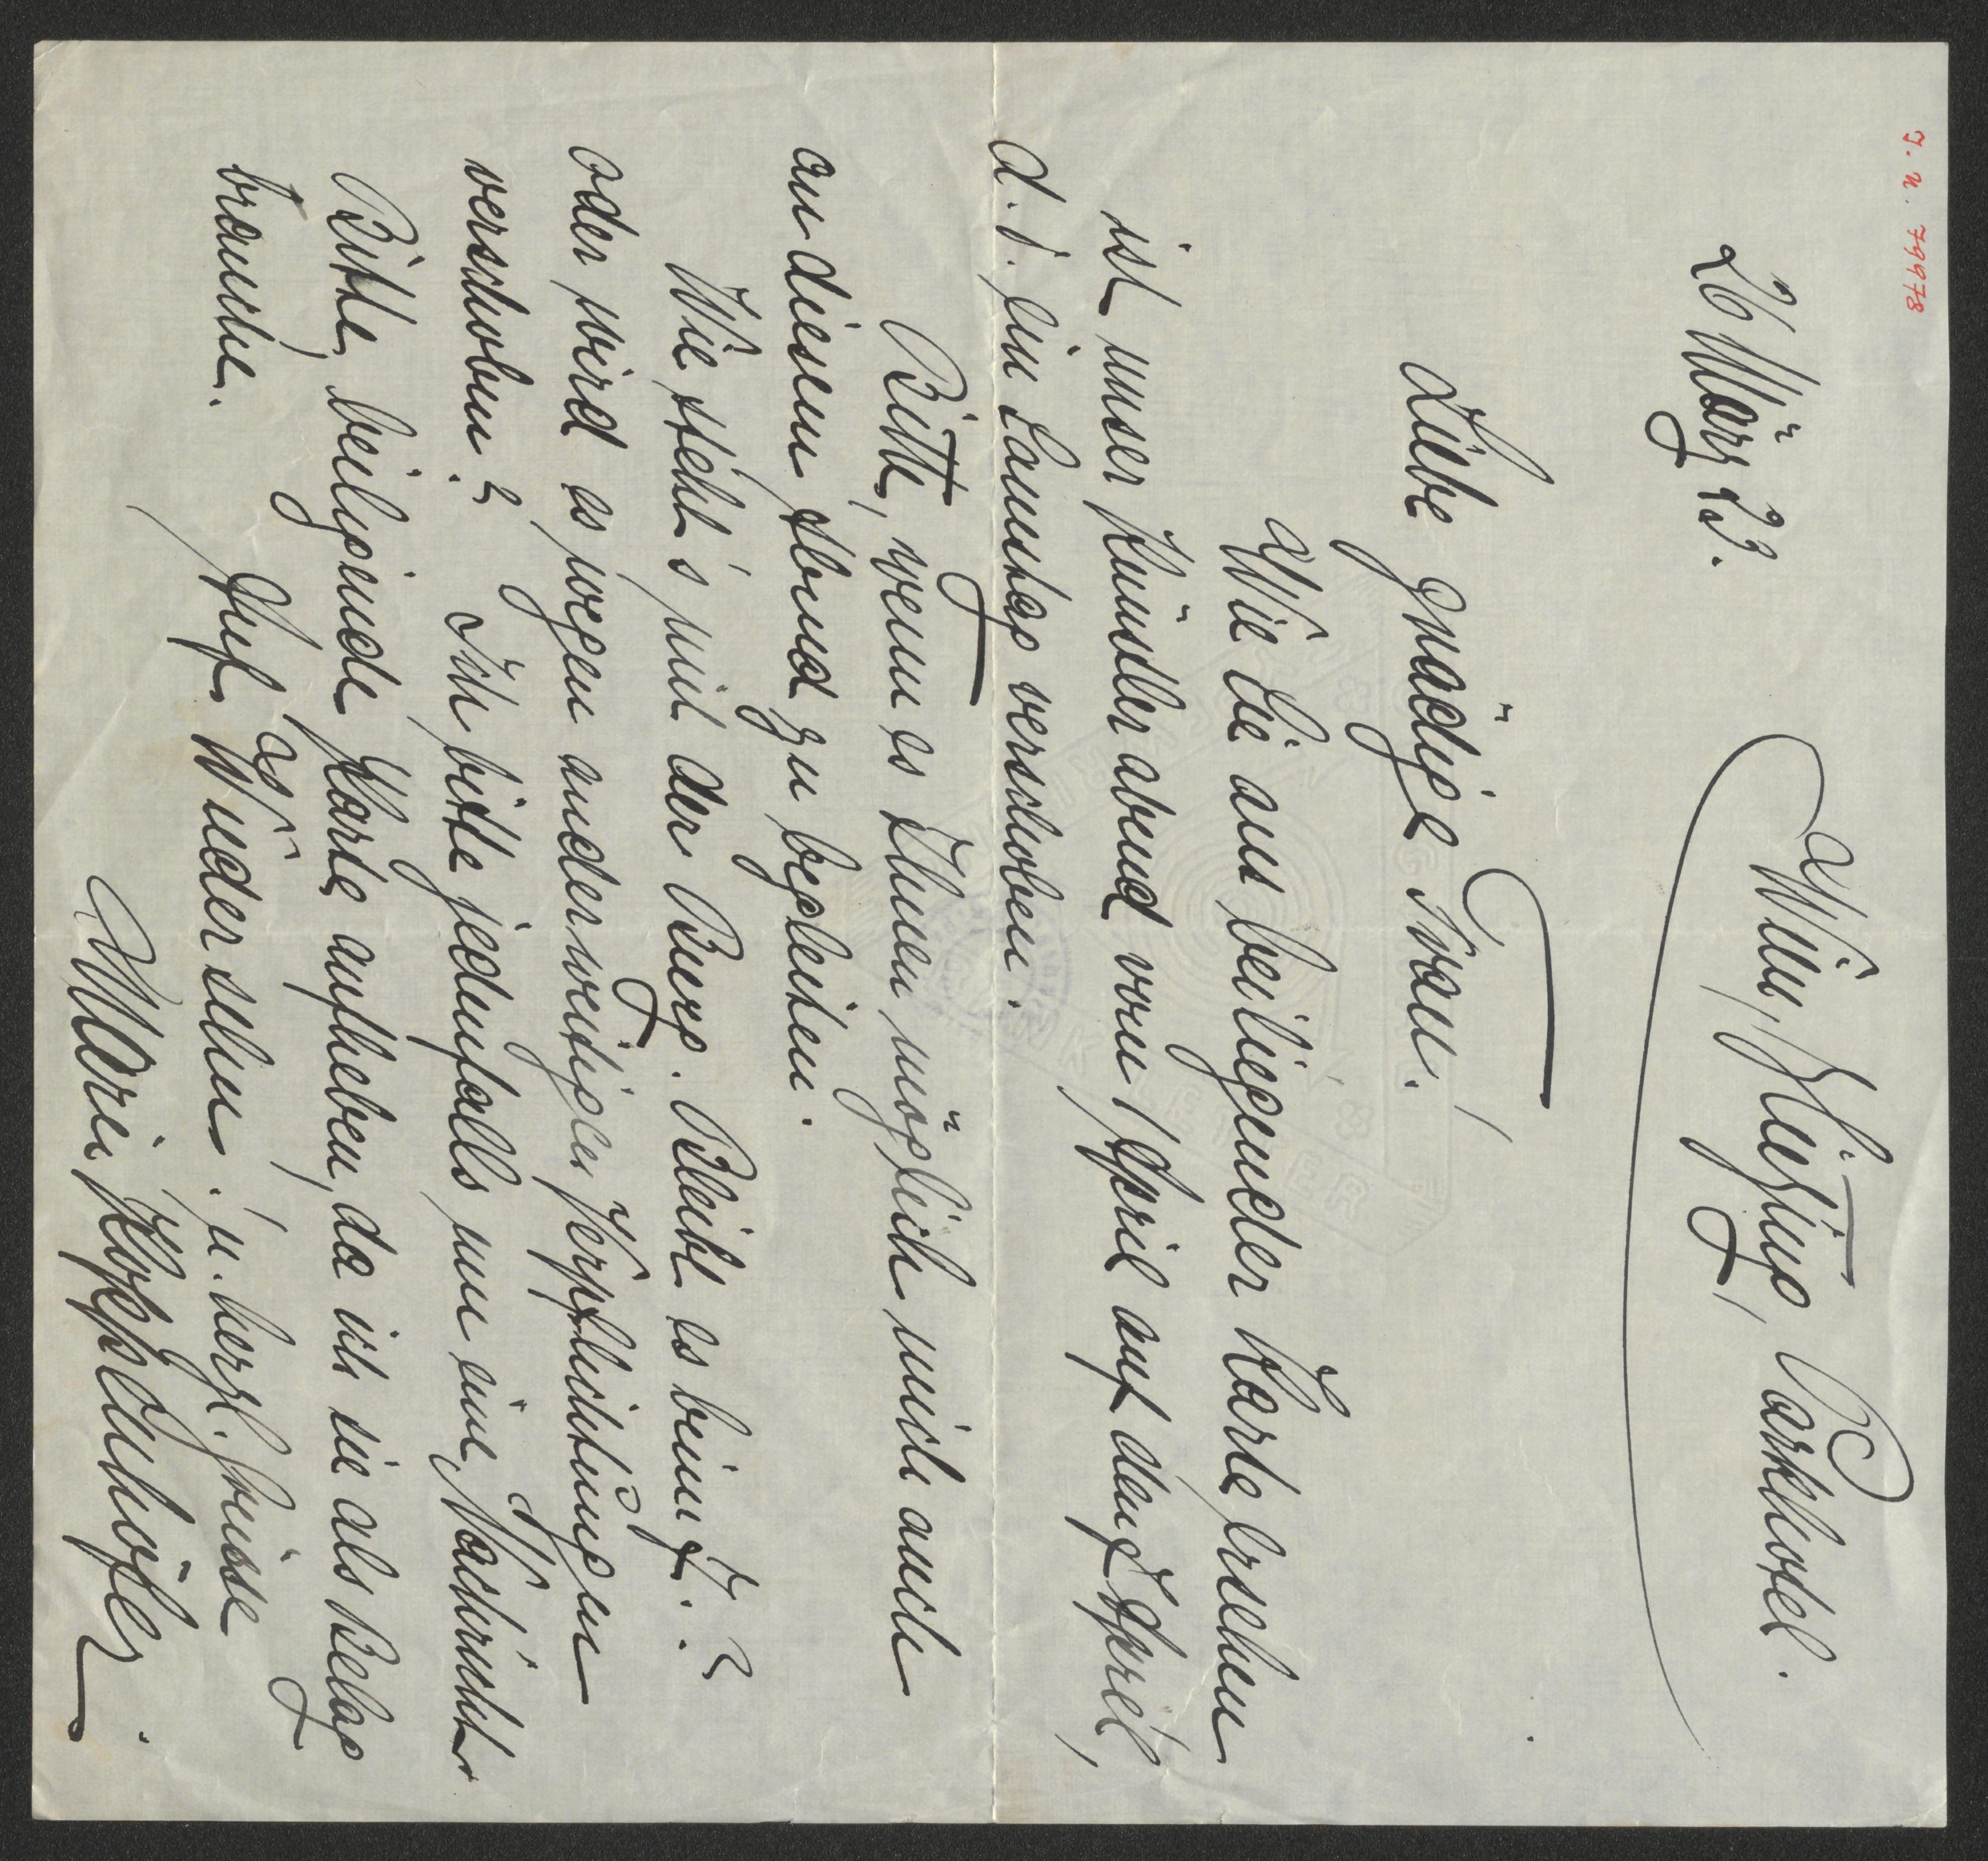 J. N. 79978
Wien, Hietzing, Parkhotel.
26 März 23.
Liebe gnädige Frau!
Wie Sie aus beiliegender Karte ersehen
ist unser Künstlerabend vom 1 April auf den 7 April,
d. i. ein Samstag verschoben.
Bitte, wenn es Ihnen möglich mich auch
an diesem Abend zu begleiten.
Wie steht's mit der Burg. Bleibt es beim 7.?
oder wird es wegen anderweitigen Verpflichtungen
verschoben? Ich bitte jedenfalls um eine Nachricht
Bitte, beiliegende Karte aufheben, da ich sie als Beleg
brauche.
Auf Wiedersehen! u. herzl. Grüsse
Marie Klopfenhofer
DRINK LETTER